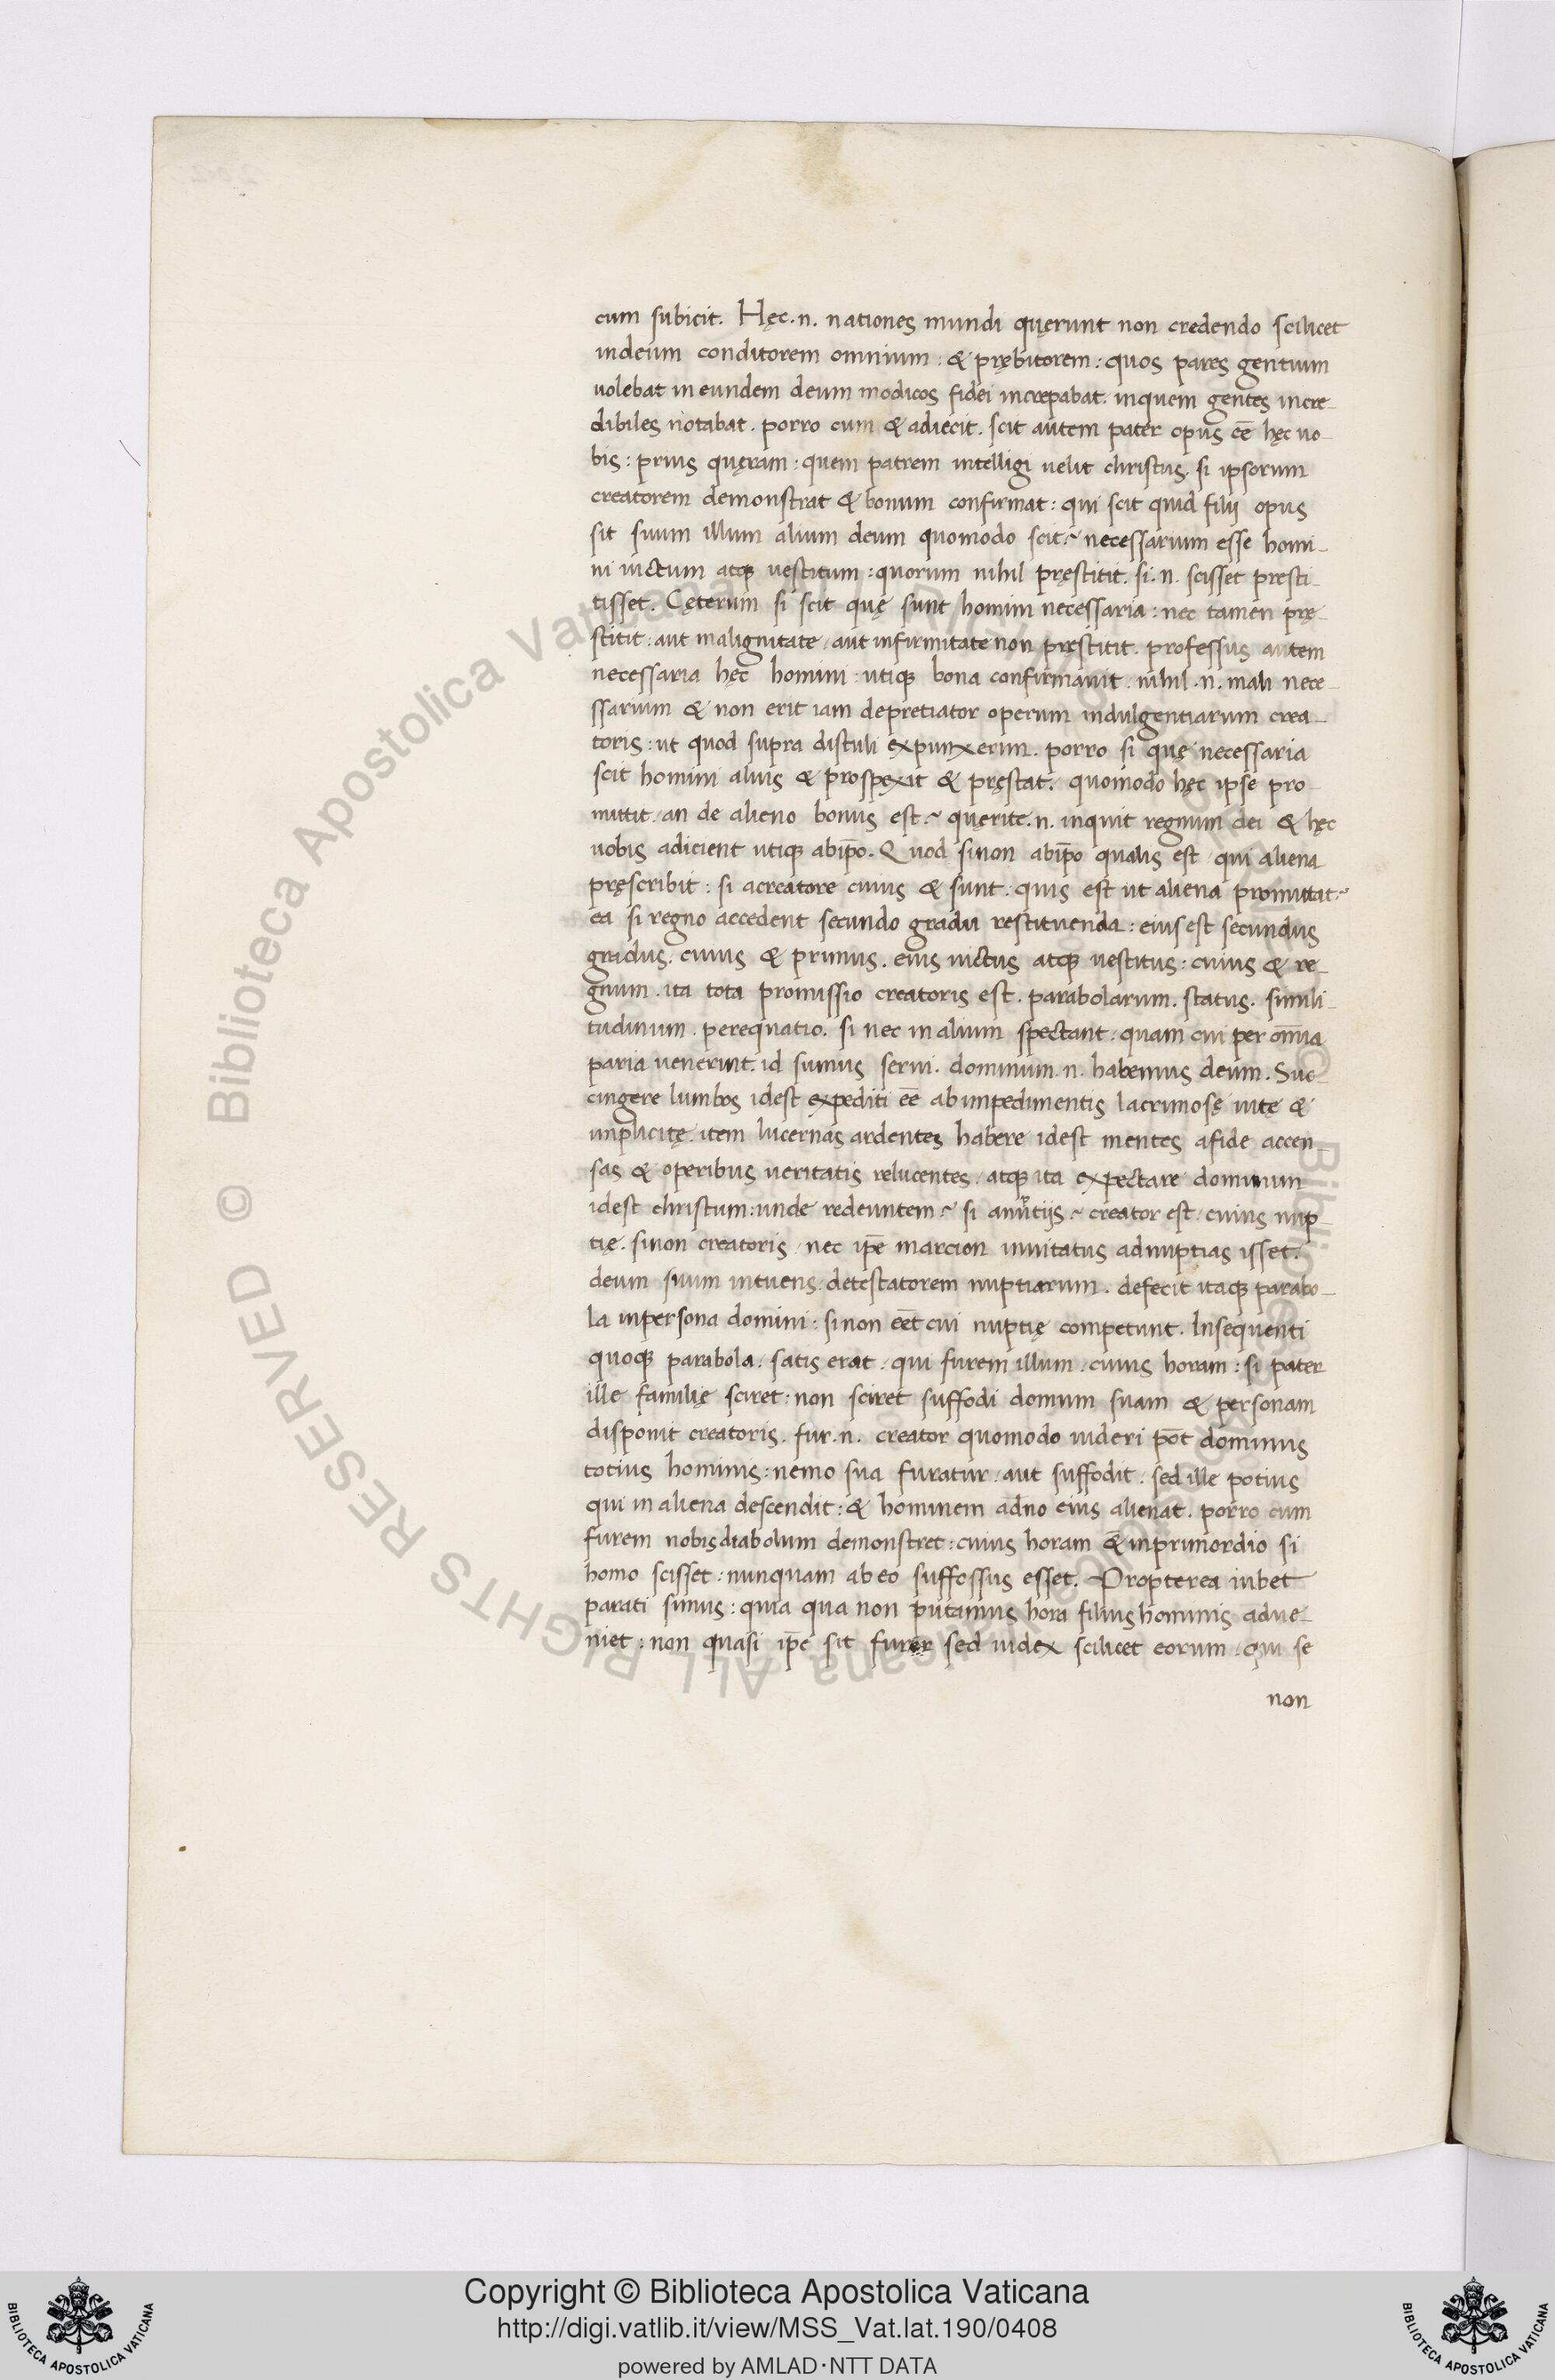 cum subicit. Hęc .n. nationes mundi quęrunt non credendo scilicet
indeum conditorem omnium : & prębitorem : quos pares gentium
uolebat in eundem deum modicos fidei increpabat. inquem gentes incre-
dibiles notabat . porro cum & adiecit . scit autem pater opus eē hęc uo-
bis : prius quęram : quem patrem intelligi uelit christus . si ipsorum
creatorem demonstrat & bonum confirmat : qui scit quid filij opus
sit suum illum alium deum quomodo scit ? necessarium esse homi-
ni uictum atq; uestitum : quorum nihil pręstitit. si .n. scisset presti-
tisset . Cęterum si scit quę sunt homini necessaria : nec tamen prę-
stitit : aut malignitate . aut infirmitate non pręstitit . professus autem
necessaria hęc homini : utiq; bona confirmauit . nihil .n. mali nece-
ssarium & non erit iam depretiator operum indulgentiarum crea-
toris : ut quod supra distuli expunxerim . porro si quę necessaria
scit homini aluis & prospexit & pręstat . quomodo hęc ipse pro-
mittit . an de alieno bonus est ? quęrite .n. inquit regnum dei & hęc
uobis adicient utiq; abip̄o . Quod sinon abip̄o qualis est qui aliena
pręscribit : si acreatore cuius & sunt : quis est ut aliena promittat ?
ea si regno accedent secundo gradu restituenda : eius est secundus
gradus . cuius & primus . eius uictus atq; uestitus : cuius & re-
gnum . ita tota promissio creatoris est . parabolarum . status . simili-
tudinum . perequatio . si nec in alium spectant : quam cui per om̄ia
paria uenerint . id sumus serui . dominum .n. habemus deum . Suc-
cingere lumbos idest expediti eē ab inpedimentis lacrimosę uitę &
implicitę . item lucernas ardentes habere idest mentes afide accen-
sas & operibus ueritatis relucentes . atq; ita expectare dominum
idest christum : unde redeuntem ? si anuptijs ? creator est . cuius nup-
tię . sinon creatoris nec ip̄e marcion inuitatus adnuptias isset .
deum suum intuens . detestatorem nuptiarum . defecit itaq; parabo-
la inpersona domini : sinon eēt cui nuptię competunt . Insequenti
quoq; parabola . satis erat . qui furem illum . cuius horam : si pater
ille familię sciret : non sciret suffodi domum suam & personam
disponit creatoris . fur .n. creator quomodo uideri pōt dominus
totius hominis : nemo sua furatur . aut suffodit . sed ille potius
qui in aliena descendit : & hominem adn̄o eius alienat . porro cum
furem nobis diabolum demonstret : cuius horam & inprimordio si
homo scisset : nunquam ab eo suffossus esset . Propterea iubet
parati simus : quia qua non putamus hora filius hominis adue-
niet : non quasi ip̄e sit furęr sed iudex scilicet eorum . qui se
non
© Biblioteca Apostolica Vaticana ALL RIGHTS RESERVED
Copyright © Biblioteca Apostolica Vaticana
http://digi.vatlib.it/view/MSS_Vat.lat.190/0408
powered by AMLAD·NTT DATA
BIBLIOTECA APOSTOLICA VATICANA
BIBLIOTECA APOSTOLICA VATICANA